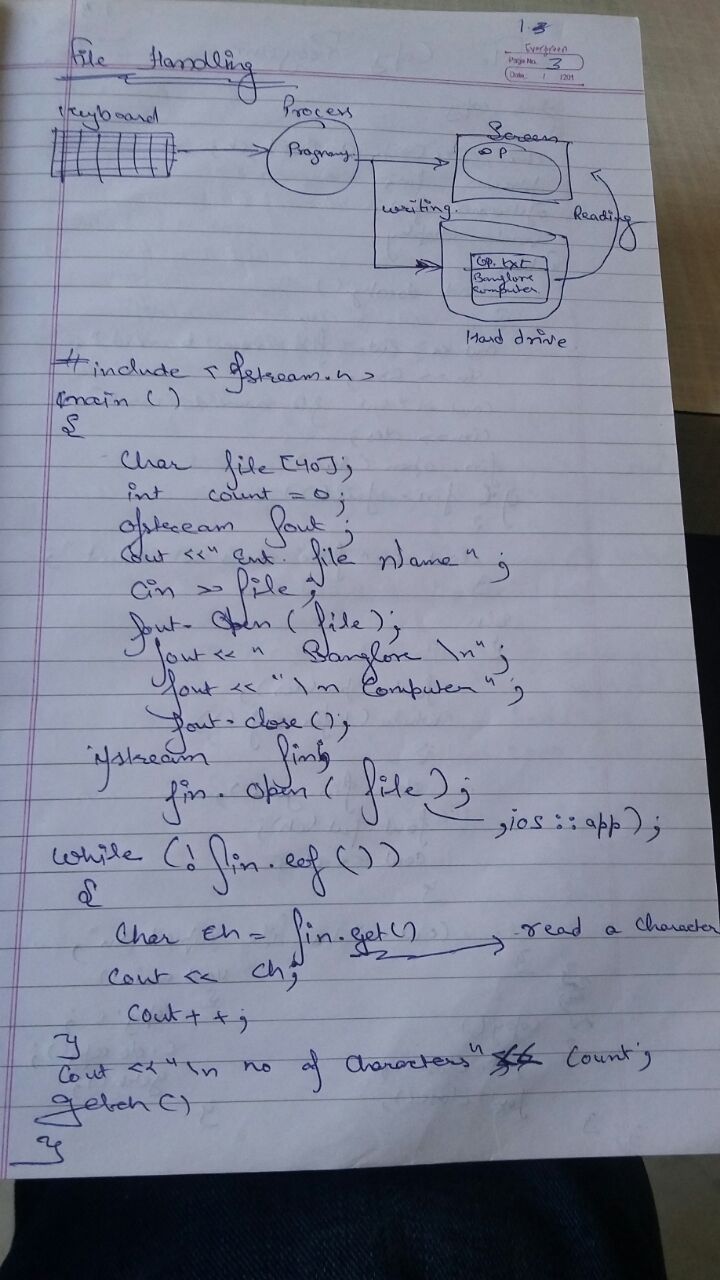 1.3
Evergreen
Page No. 3
Date / / 201
File Handling
Keyboard
Process
Program
Screen
OP
writing.
Reading
Op. txt
Banglore
Computer
Hard drive
# include < fstream.h >
main ()
{
char file [40];
int count = 0;
ofstream fout ;
cout <<" Ent. file Name" ;
cin >> file ;
fout. open ( file );
fout << " Banglore \n" ;
fout << "\n Computer" ;
fout. close ();
ifstream fin;
fin. open ( file );
,ios :: app);
while (! fin. eof ())
{
Char Ch = fin. get () read a character
cout << ch;
Cout + + ;
}
Cout <<"\n no of characters" << Count ;
getch ()
}